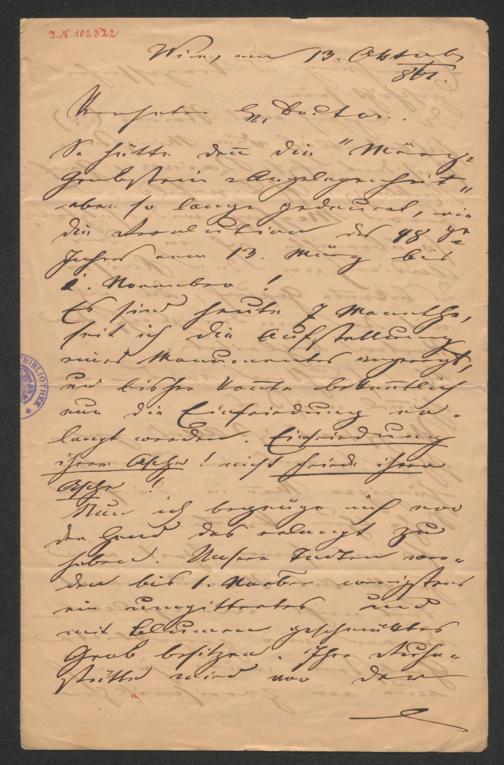 J.N. 102822
Wien, am 13. Oktob.
861.
Verehrter H. Doctor.
So hätte den die "März-
Grabstein Angelegenheit"
eben so lange gedauert, wie
die Revolution des 48 ge
Jahres vom 13. März bis
1. November!
Es sind heute 7 Monathe,
seit ich die Aufstellung
eines Monumentes angeregt,
und bisher konnte bekantlich
nur die Einfriedung er-
langt werden. Einfriedung
ihrer Asche! nicht Friede ihrer
Asche!!
Nun ich begnüge mich vor
der Hand das erlangt zu
haben. Unsere Todten wer-
den bis 1. November wenigstens
ein umgittertes und
mit Blumen geschmücktes
Grab besitzen. Ihre Ruhe-
stätte wird vor der
BIBLIOTHEK